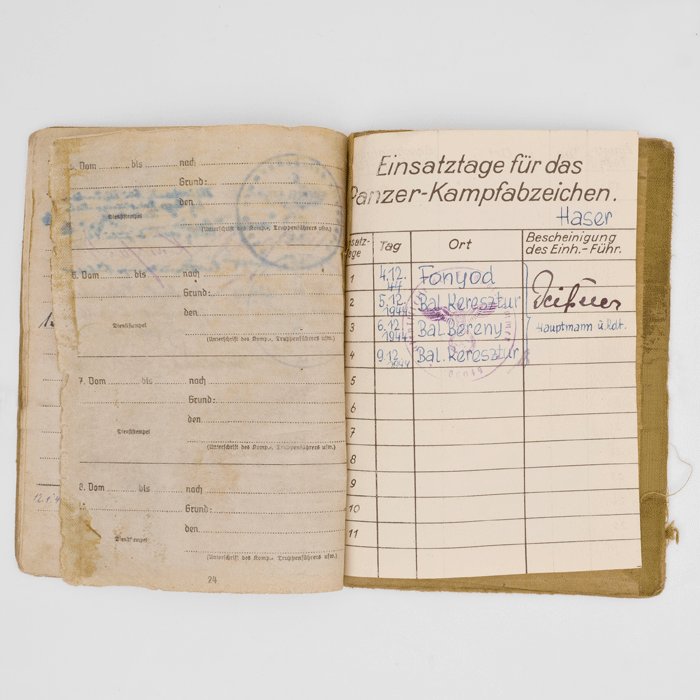 5. Vom bis nach
Grund:
den
Dienststempel
(Unterschrift des Komp.-, Truppenführers usw.)
6. Vom bis nach
Grund:
den
Dienststempel
(Unterschrift des Komp.-, Truppenführers usw.)
7. Vom bis nach
Grund:
den
Dienststempel
(Unterschrift des Komp.-, Truppenführers usw.)
8. Vom bis nach
Grund:
den
Dienststempel
(Unterschrift des Komp.-, Truppenführers usw.)
24
Einsatztage für das
Panzer-Kampfabzeichen.
Haser
Tag Ort Bescheinigung
des Einh.-Führ.
1 4.12. 44 Fonyod
2 5.12. 1944 Bal. Keresztur
3 6.12. 1944 Bal. Bereny Hauptmann u. Kdt.
4 9.12. 1944 Bal. Keresztur
5
6
7
8
9
10
11